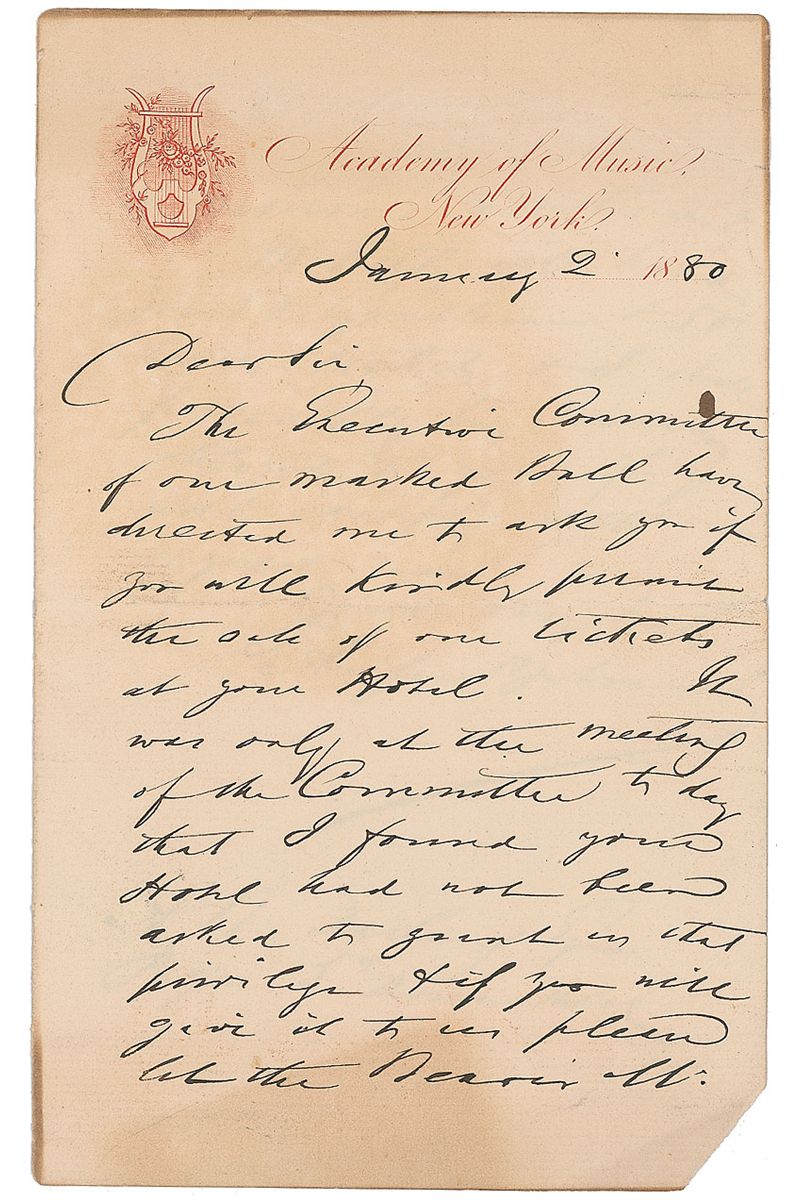 Academy of Music,
New York.
January 2 1880
Dear Sir
The Executive Committee
of our masked Ball have
directed me to ask you if
you will kindly permit
the sale of our tickets
at your Hotel. It
was only at the meeting
of the Committee to day
that I found your
Hotel had not been
asked to grant us that
privilege & if you will
give it to us please
let the Bearer Mr.